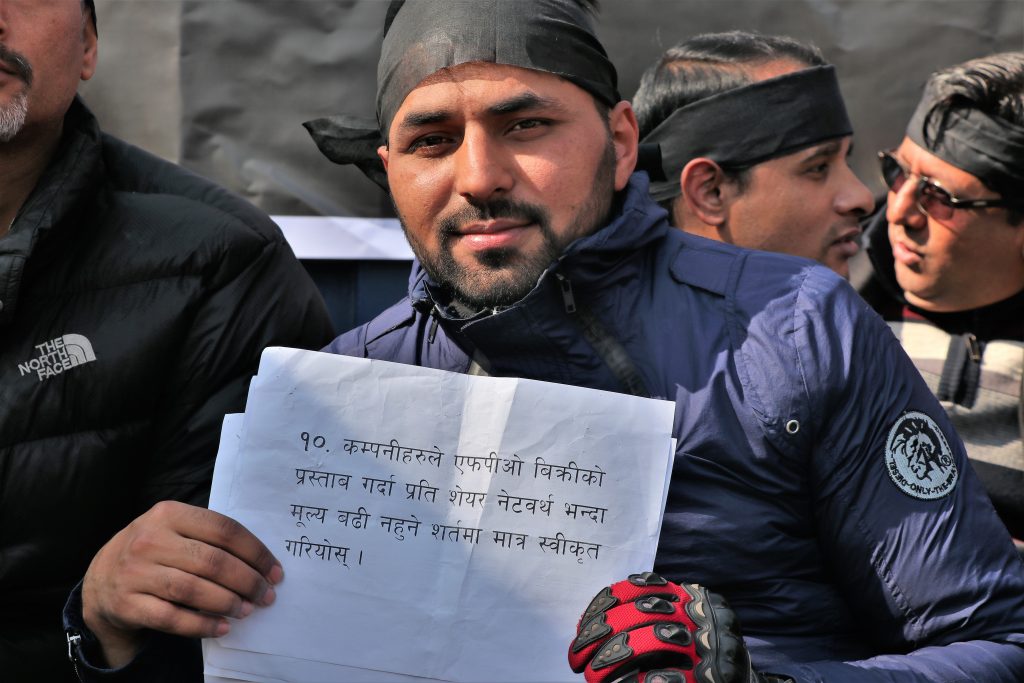 THE
NORTH
FACE
१०. कम्पनीहरुले एफपीओ बिक्रीको
प्रस्ताब गर्दा प्रति शेयर नेटवर्थ भन्दा
मूल्य बढी नहुने शर्तमा मात्र स्वीकृत
गरियोस् ।